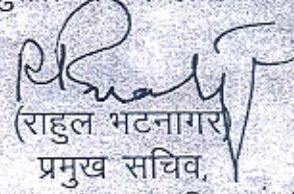 (राहुल भटनागर)
प्रमुख सचिव,